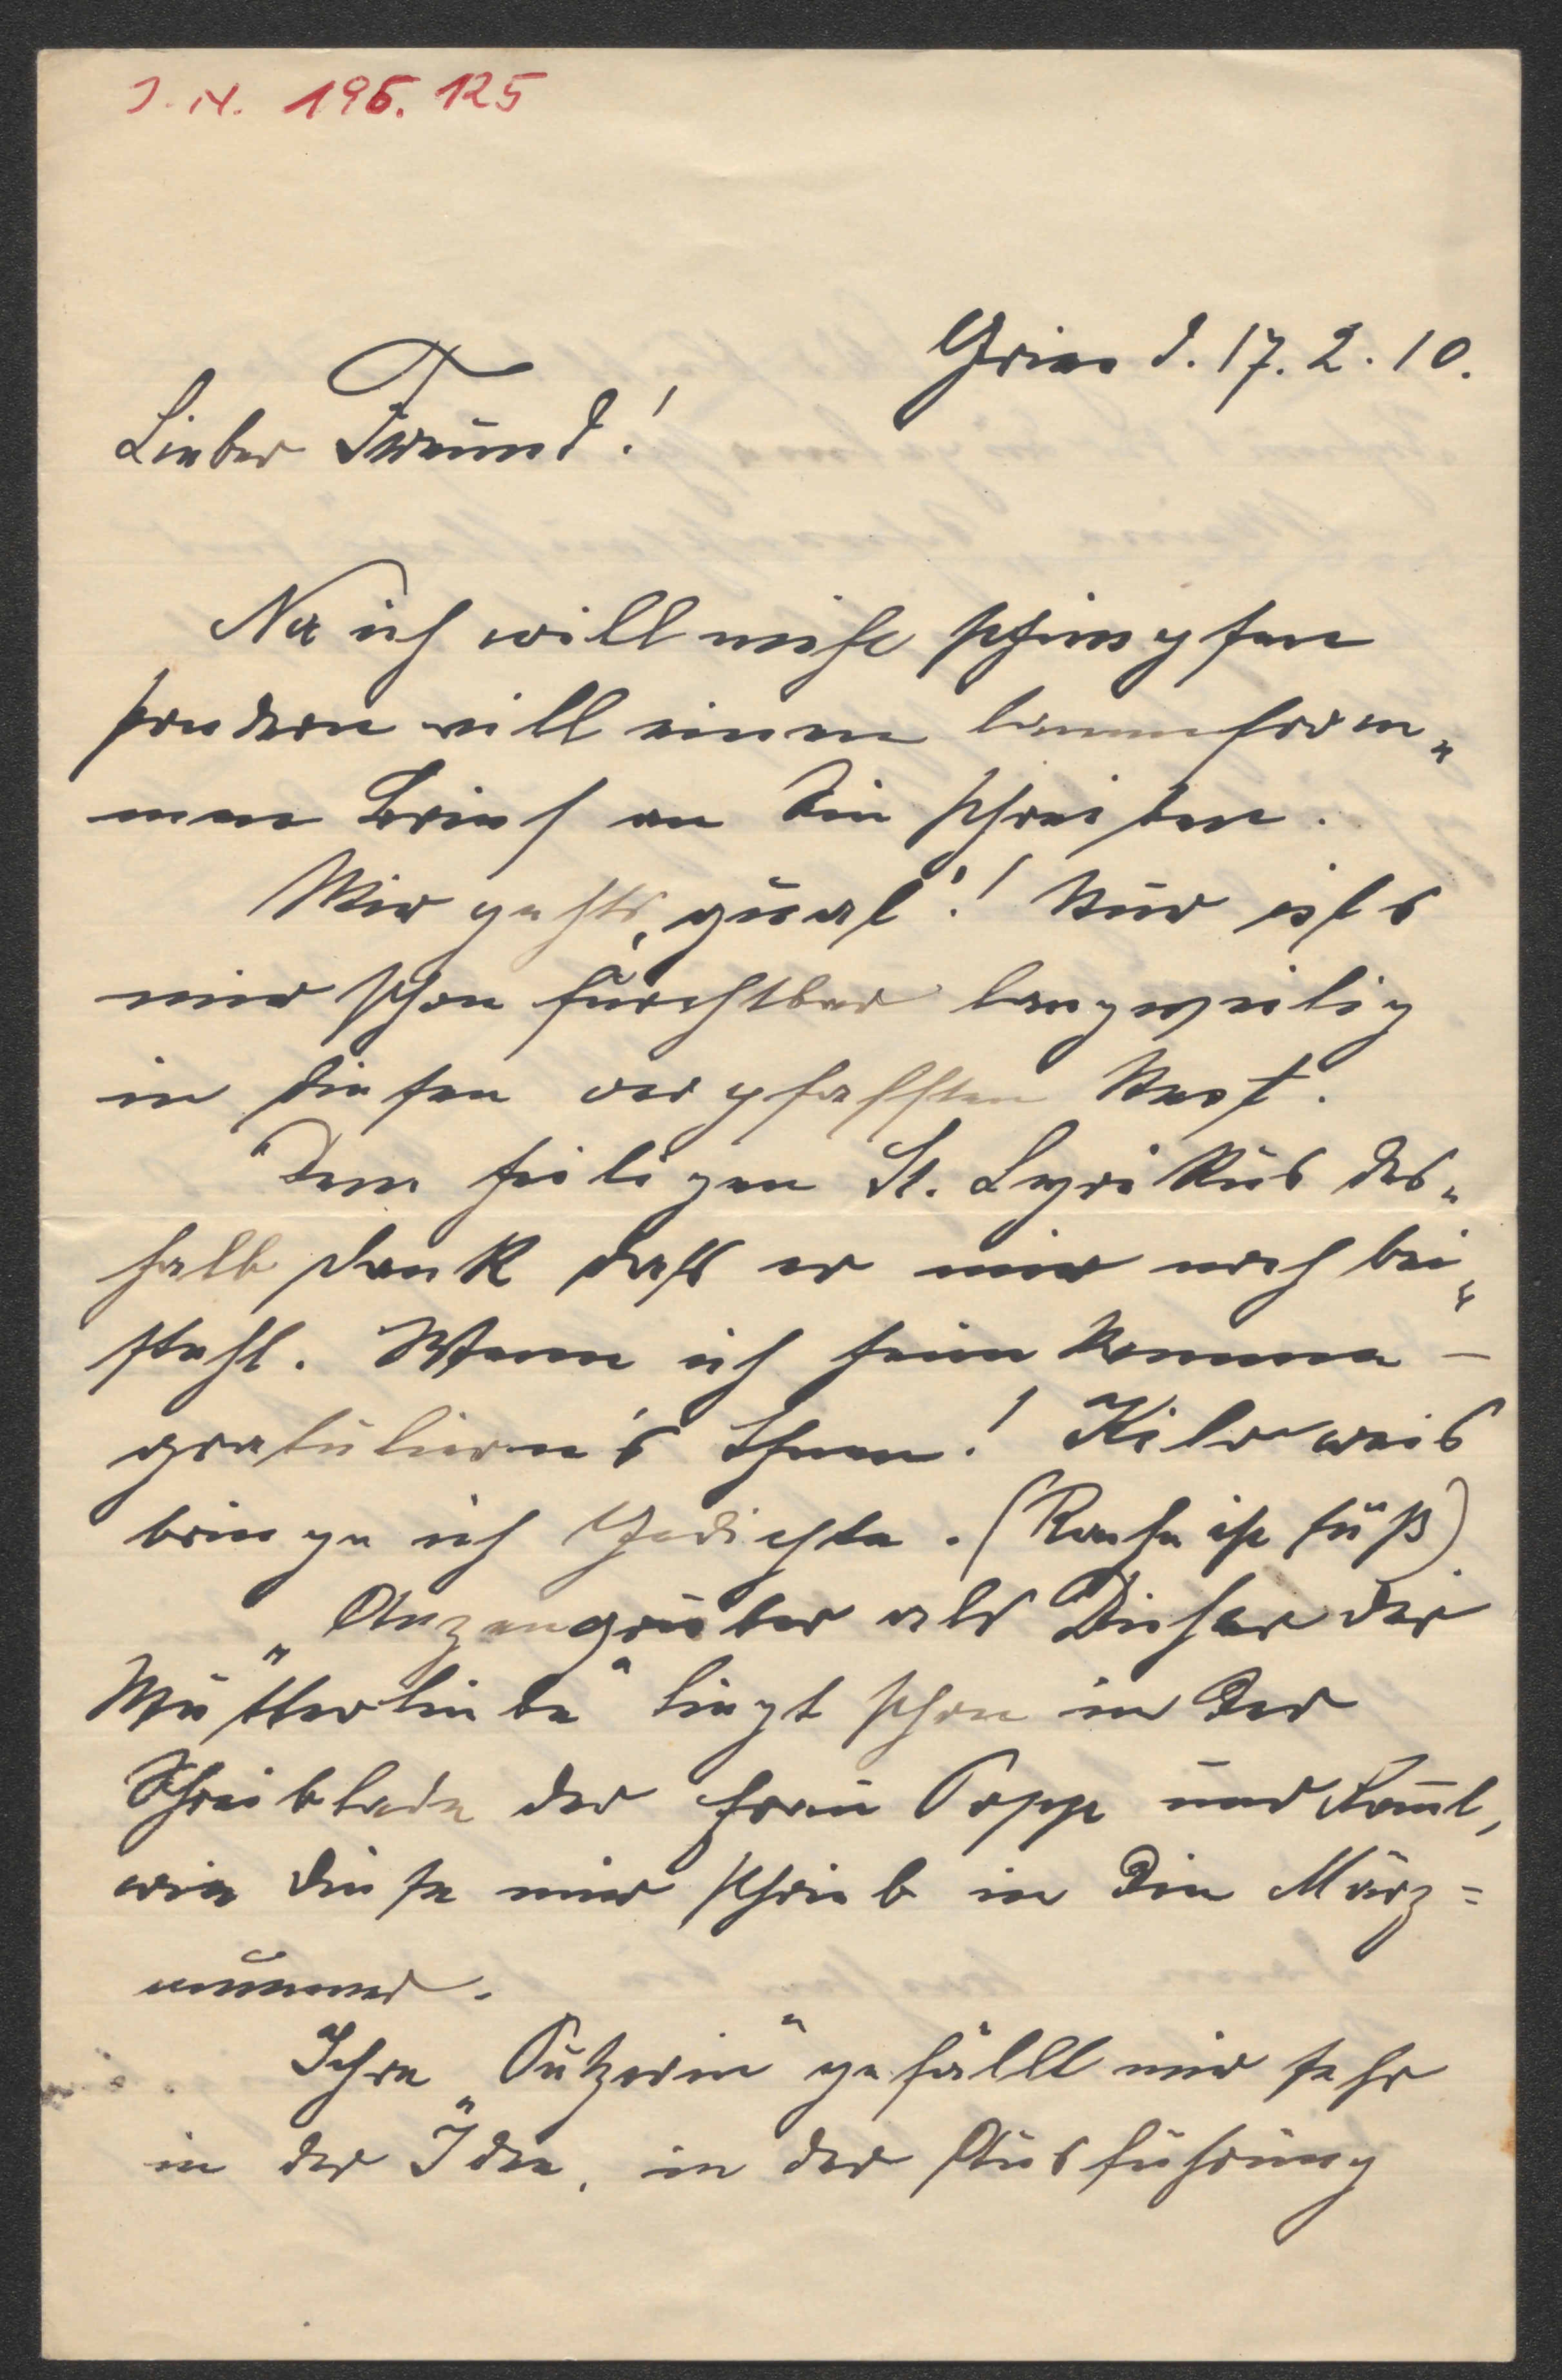 J. N. 196.125
Gries d. 17. 2. 10.
Lieber Freund!
Na ich will nicht schimpfen
sondern will einen lammfrom„
men Brief an Sie schreiben.
Mir gehts, guat'! Nur ists
mir schon furchtbar langweilig
in diesen verpfafften Nest.
Dem heiligen St. Lyrikus des„
halb dank daß er mir noch bei„
steht. Wenn ich heim komme –
gratulieren's Ihnen! Kiloweis
bringe ich Gedichte. (Rache ist süß)
„Anzengruber als Dichter der
Mutterliebe" liegt schon in der
Schreiblade der Frau Popp und kommt,
wie diese mir schrieb in die März=
nummer.
Ihre „Putzerin" gefällt mir sehr
in der Idee, in der Ausführung